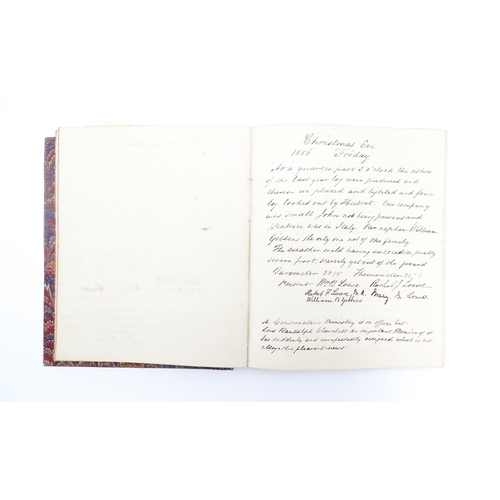 Christmas Eve
1886 Friday
At a quarter past 5 o'clock the ashes
of the last year log were produced and
placed and lighted and
log looked out by Hubert. Our company
was small John not being present and
was in Italy. Our nephew William
Gibbins the only one not of the family.
The weather mild having succeeded
severe frost, scarcely yet out of the ground
Barometer Thermometer
Present Wm Lowe Rachel J Lowe
Hubert F Lowe Mary Lowe
William B Gibbins
A Conservative Ministry is in office but
Lord Randolph Churchill an important Member of it
has suddenly and unexpectedly resigned which is not
altogether pleasant news.